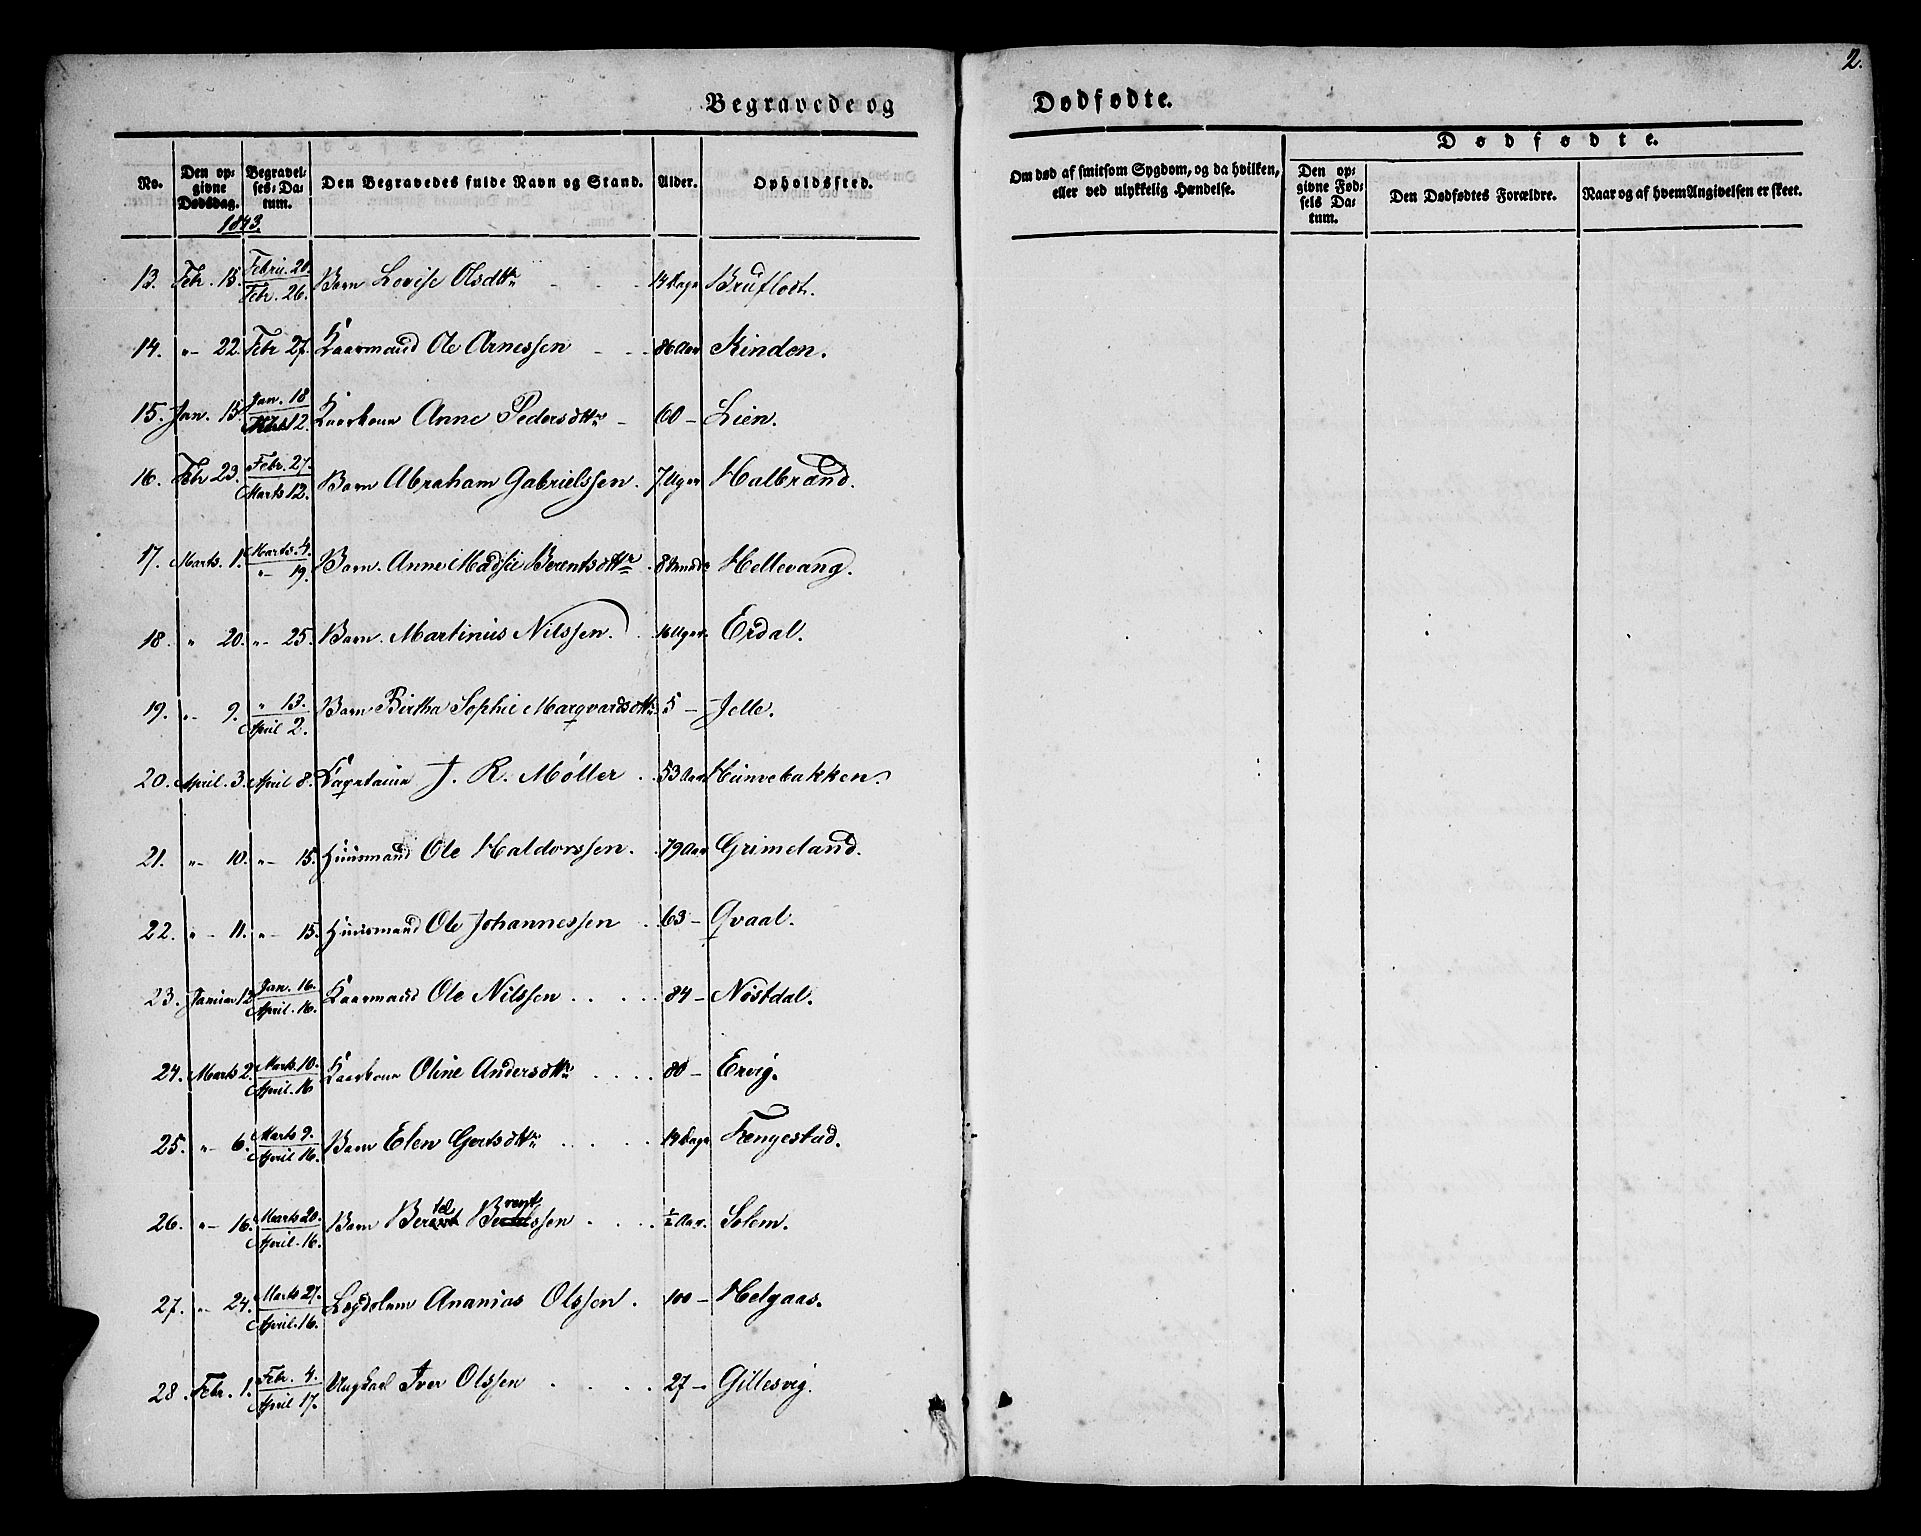 2.
Begravede og Dødfødte.
No. Den opgivne Dødsdag. Begravelses-Datum. Den Begravedes fulde Navn og Stand. Alder. Opholdssted. Om død af smitsom Sygdom, og da hvilken, eller ved ulykkelig Hændelse. Dødfødte. Den opgivne Fødsels Datum. Den Dødfødtes Forældre. Naar og af hvem Angivelsen er skeet.
1843.
13. Febr. 15. Febru. 20. Febr. 26. Barn Lovise Olsdttr 14 Dage Bruflodt.
14. "- 22. Febr 27. Kaarmand Ole Arnessen 86 Aar Kinden.
15. Jan. 15. Jan. 18 Marts 12. Kaarkone Anne Pedersdttr 60 - Lien.
16. Febr 23. Febr. 27. Marts 12. Barn Abraham Gabrielssen. 7 Uger Halbrand.
17. Marts. 1. Marts. 4. "- 19. Barn. Anne Madsie Berentsdttr 8 Hellevang.
18. " 20. "- 25. Barn. Martinus Nilssen. 16 Uger. Erdal.
19. "- 9. " 13. April 2. Barn Birtha Sophie Marqvardsdttr 5 - Jelle.
20. April. 3. April 8. Capitaine J. R. Møller 53 Aar Hunvebakken.
21. "- 10. "- 15. Huusmand Ole Haldorssen. 79 Aar Grimeland.
22. "- 11. "- 15. Huusmand Ole Johannessen 63 - Qvaal.
23. Januar 12 Jan. 16. April. 16. Kaarmand Ole Nilssen 84 - Nøstdal.
24. Marts 2. Marts 10. April. 16 Kaarkone Oline Andersdttr 80 - Ervig.
25. "- 6. Marts 9. April 16. Barn Elen Gertsdttr 14 Dage Fengestad.
26. "- 16. Marts 20. April. 16. Barn Bertel Berentssen ½ Aar. Solem.
27. "- 24. Marts 27. April. 16. Lægdslem Ananias Olssen. 100 - Helgaas.
28. Febr. 1. Febr. 4. April 17. Ungkarl Iver Olssen 27 - Gillesvig.